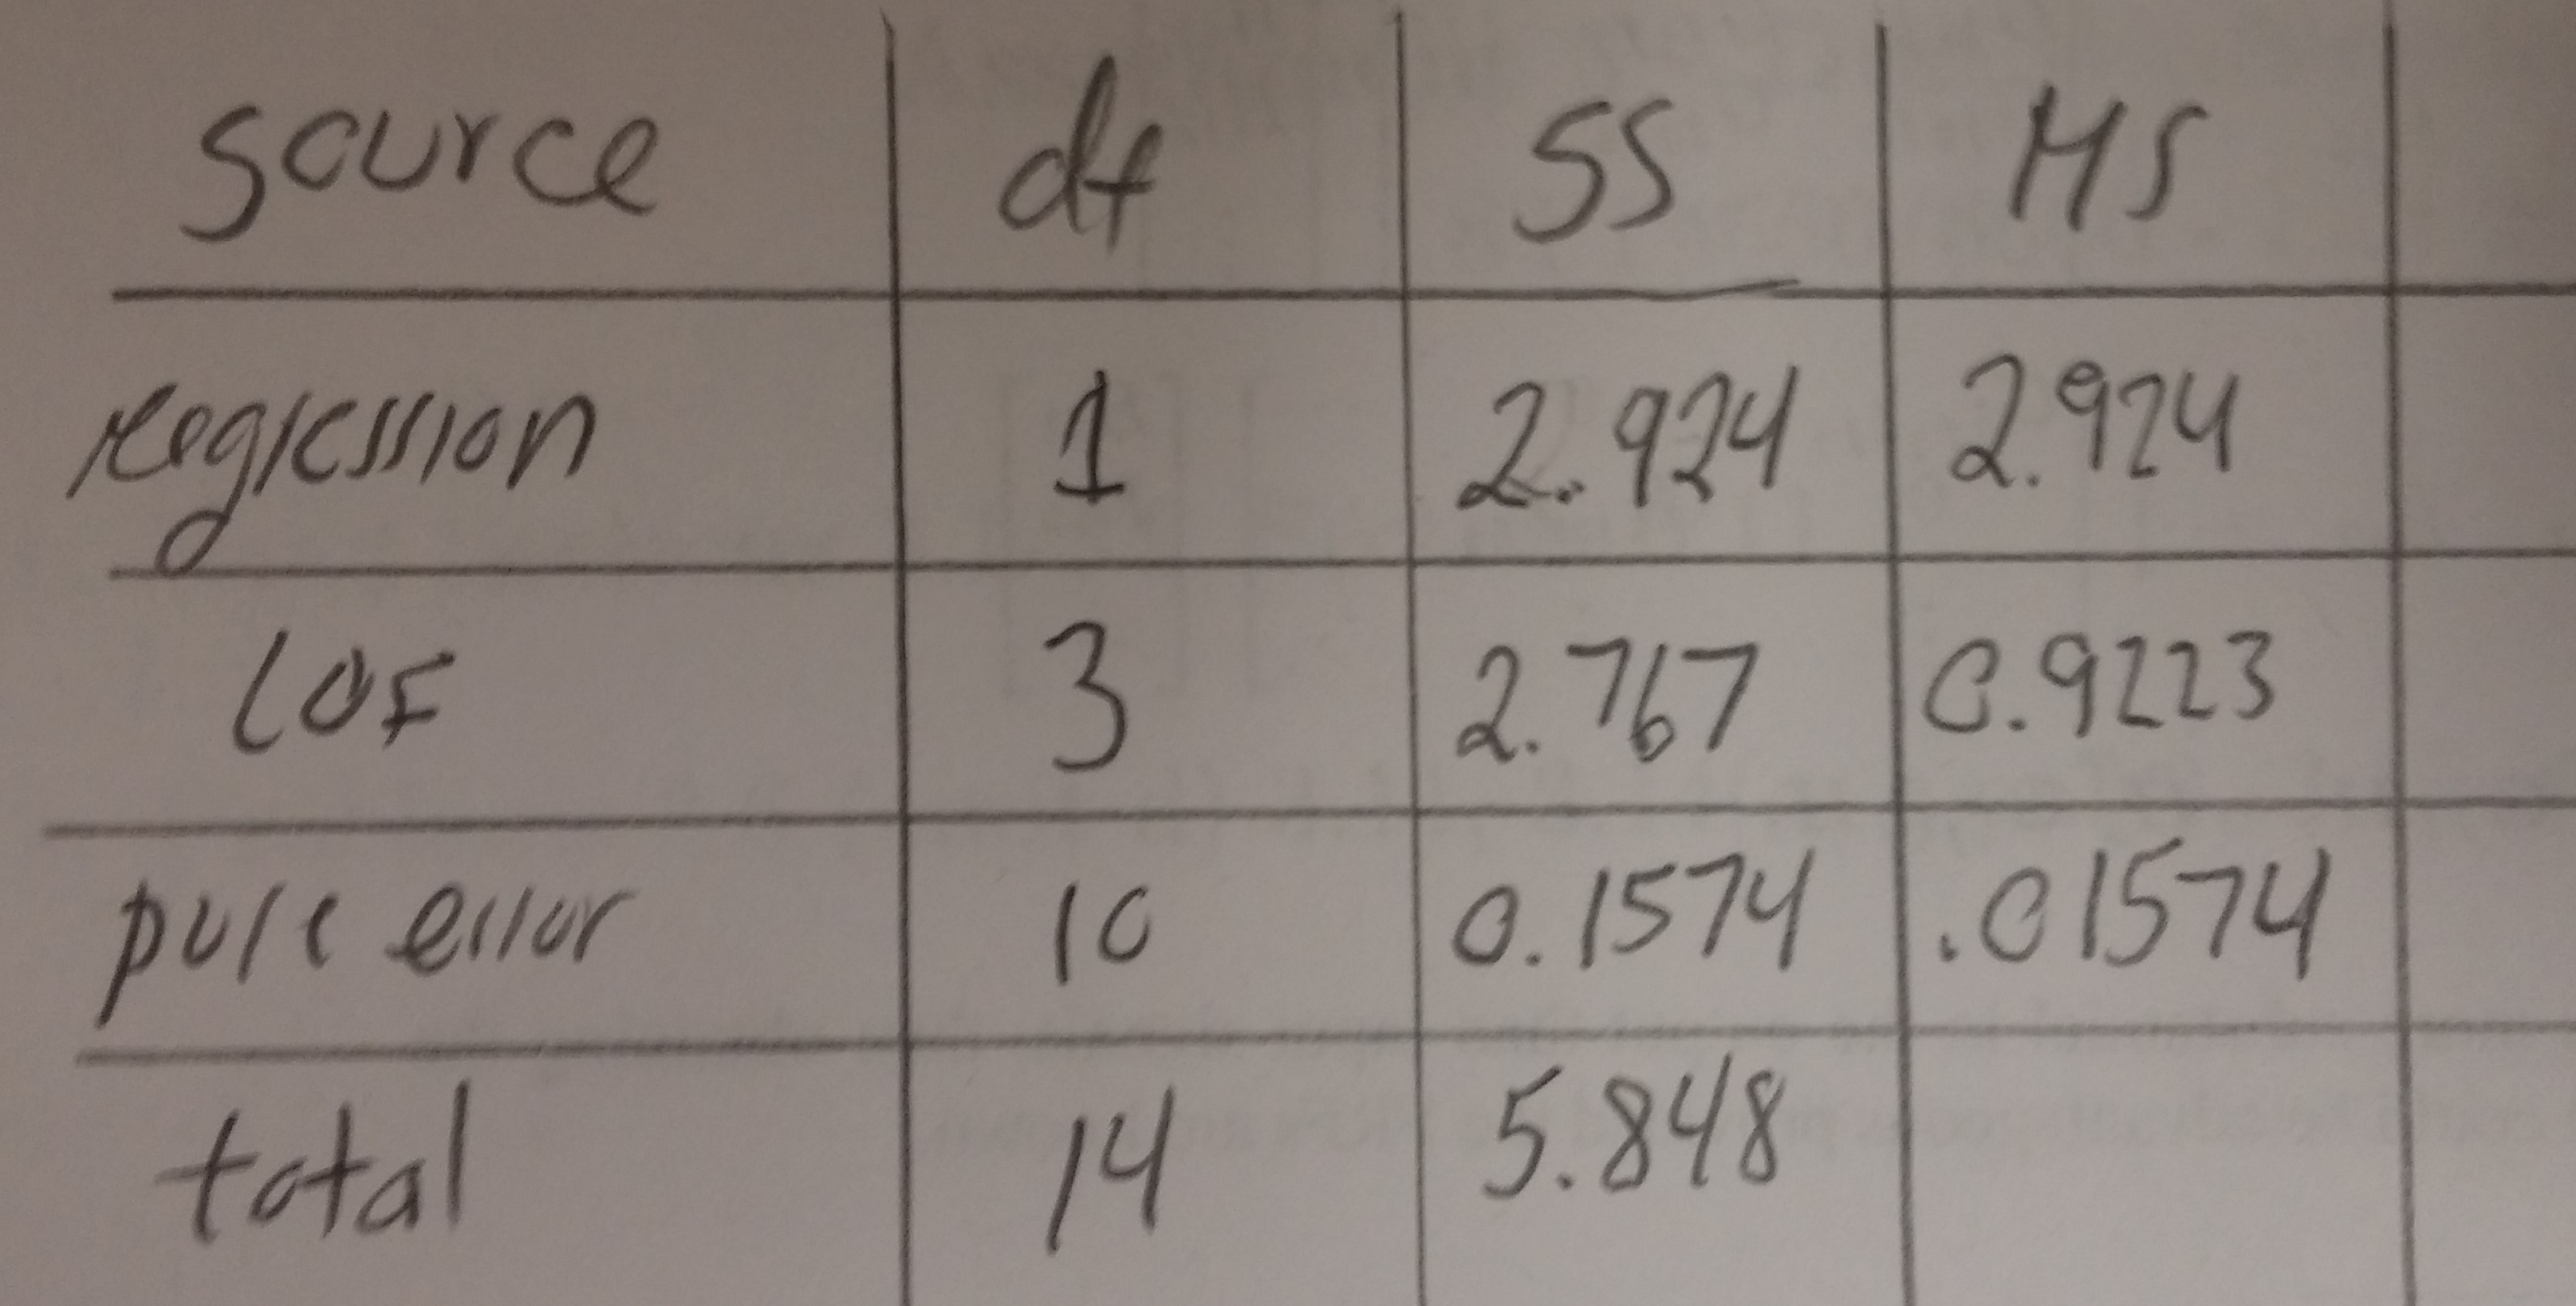 source df SS MS
regression 1 2.924 2.924
LOF 3 2.767 0.9223
pure error 10 0.1574 .01574
total 14 5.848